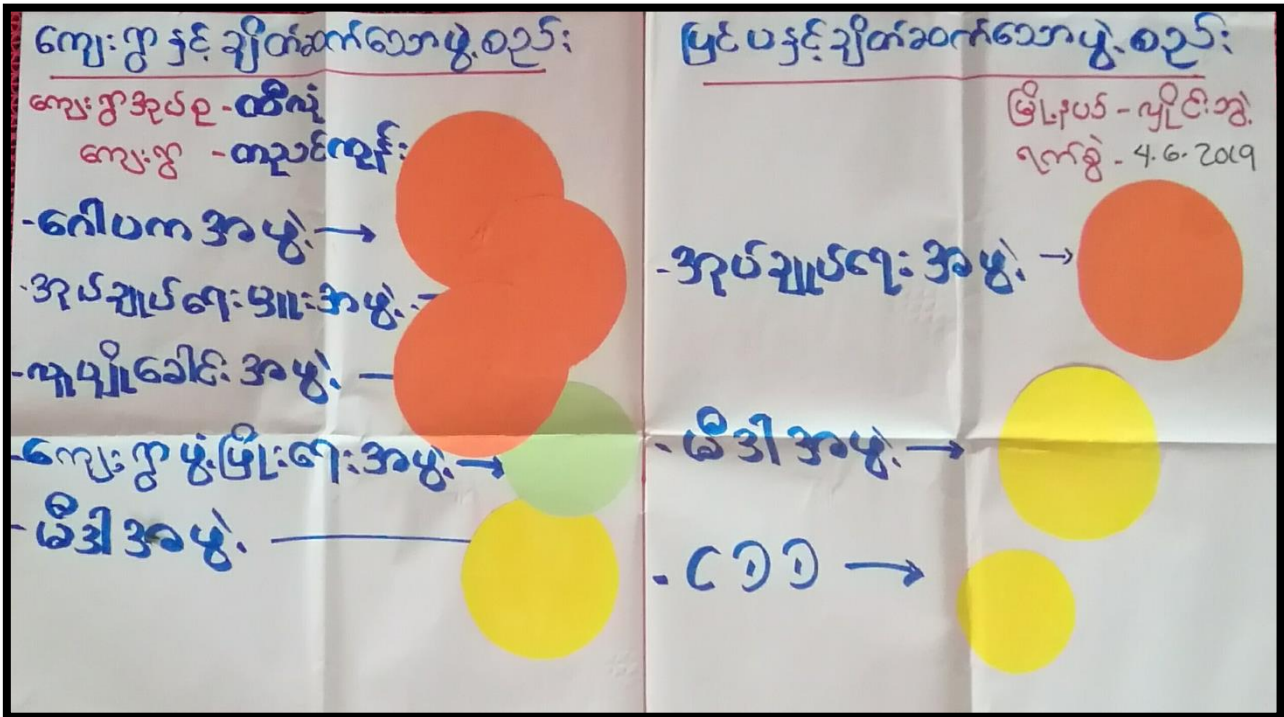 ကျေးရွာနှင့်ချိတ်ဆက်သောဖွဲ့စည်း
ကျေးရွာအုပ်စု - ထီလုံ
ကျေးရွာ - တညင်ကုန်း
- ဂေါပကအဖွဲ့ →
- အုပ်ချုပ်ရေးမှူးအဖွဲ့ -
- လူပျိုခေါင်းအဖွဲ့ —
- ကျေးရွာဖွံ့ဖြိုးရေးအဖွဲ့ →
- မီဒါအဖွဲ့ —
ပြင်ပနှင့်ချိတ်ဆက်သောဖွဲ့စည်း
မြို့နယ် - လှိုင်းဘွဲ့
ရက်စွဲ - 4.6.2019
- အုပ်ချုပ်ရေးအဖွဲ့ →
- မီဒါအဖွဲ့ →
- CDD →